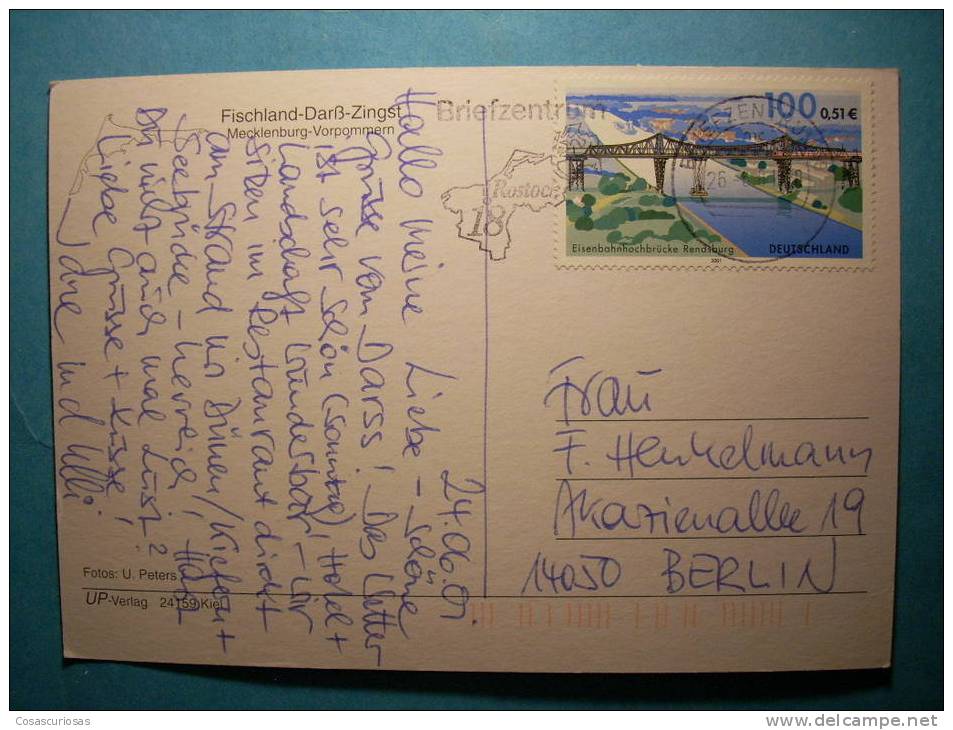 Fischland-Darß-Zingst
Mecklenburg-Vorpommern
Briefzentrum
Rostock
18
100
0,51 €
Eisenbahnhochbrücke Rendsburg
DEUTSCHLAND
2001
24.06.01
Hallo meine Liebe – schöne
Grüsse vom Darss! Das Wetter
ist sehr schön (sonnig), Hotel +
Landschaft wunderbar! – Wir
sitzen im Restaurant direkt
am Strand vor Dünen/Kiefern +
Seebrücke – herrlich! Hast
Du nicht auch mal Lust?
Liebe Grüsse + Küsse!
und Ulli.
Frau
F. Henkelmann
Akazienallee 19
14050 BERLIN
Fotos: U. Peters
UP-Verlag 24159 Kiel
Cosascuriosas
www.delcampe.net